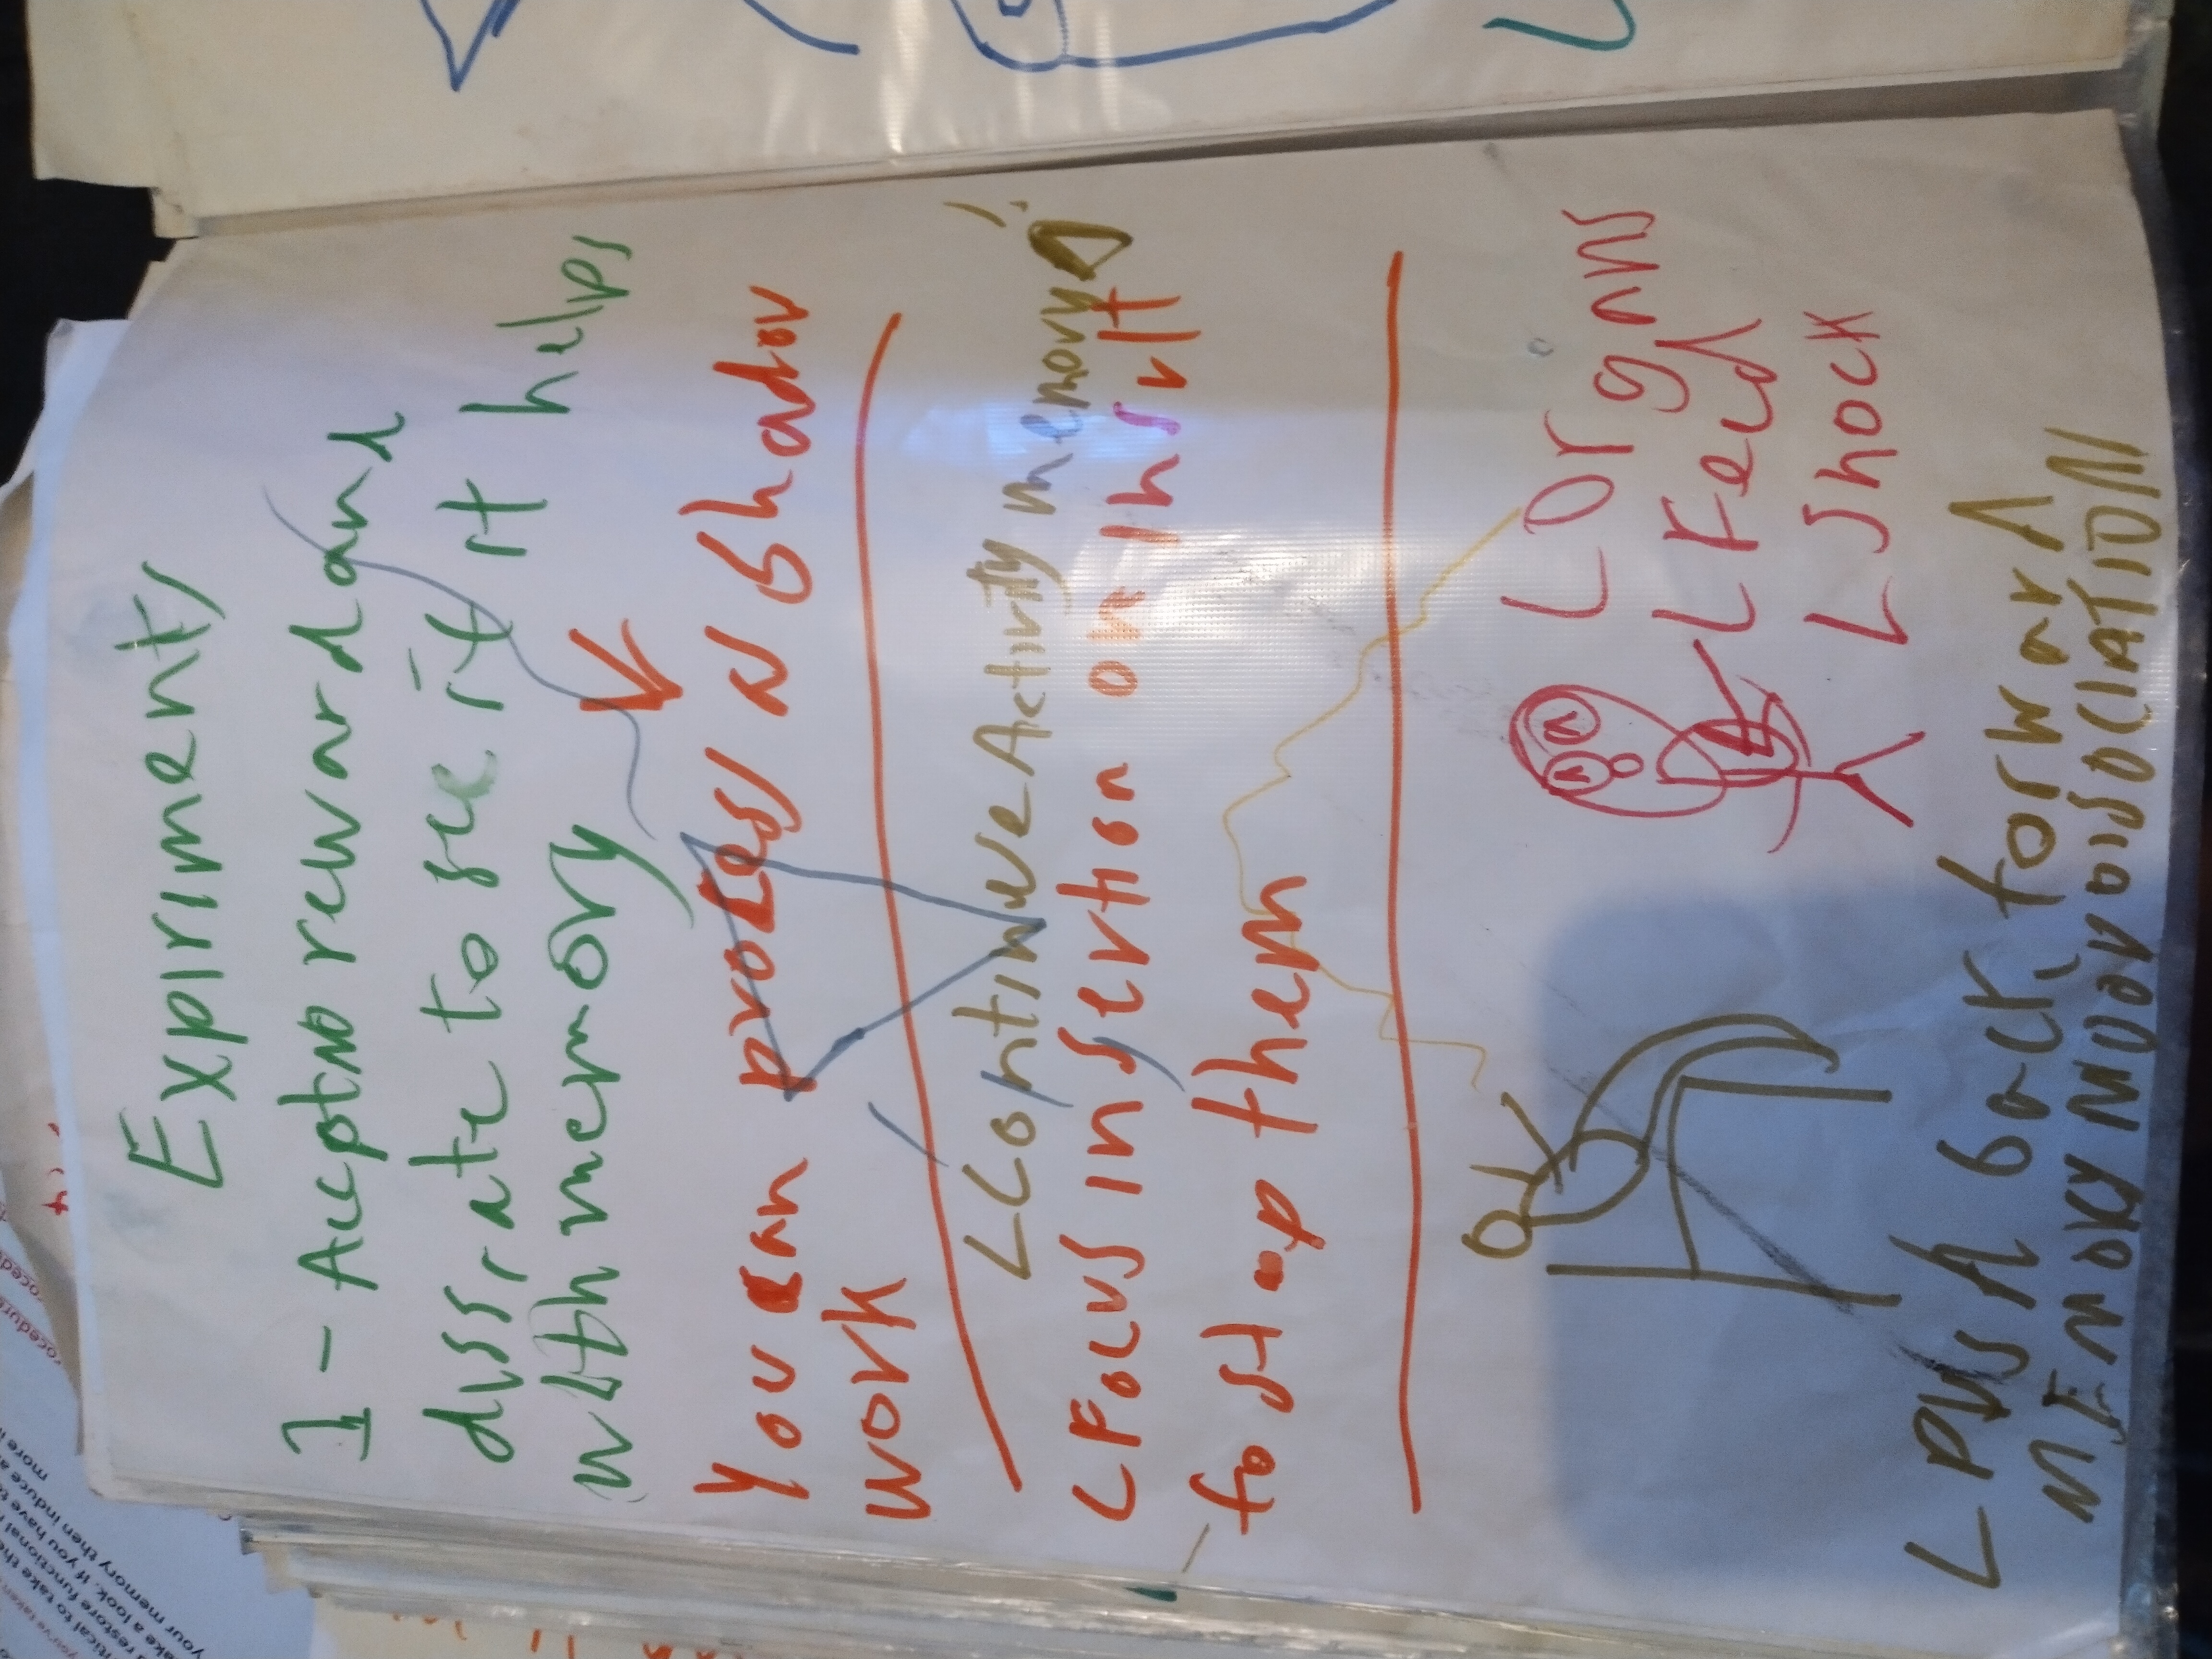 Expiriment
1 - Accept no reward and
diss rate to see if it helps
with memory
You can process N Shadow
work
L Continue Activity memory
L Focus insertion on insult
to stop them
L Organs
L Feed
L Shock
L PUSH back, forward
MEMORY NOOR DISOCIATION
your memory then induce a
ake a look. If you have to
more i